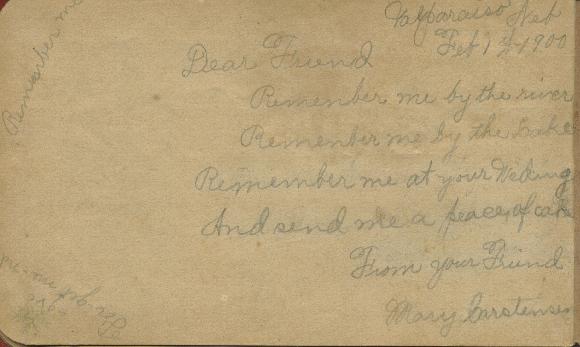 Valparaiso Neb
Feb 1 1900
Dear Friend
Remember me by the river
Remember me by the Lake
Remember me at your Weding
And send me a peace of cake
From your Friend
Mary Carstensen
Remember me
Forget me-not